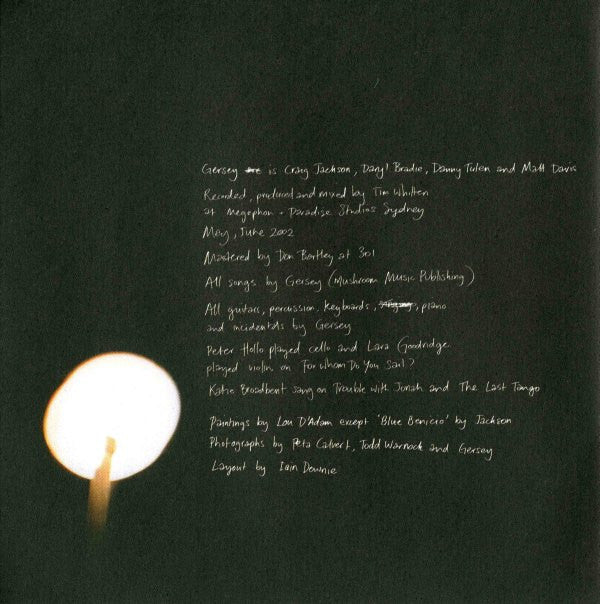 Gersey is Craig Jackson, Daryl Bradie, Danny Tulen and Matt Davis
Recorded, produced and mixed by Tim Whitten
at Megaphon + Paradise Studios Sydney
May, June 2002
Mastered by Don Bartley at 301
All songs by Gersey (Mushroom Music Publishing)
All guitars, percussion, keyboards, piano
and incidentals by Gersey
Peter Hollo played cello and Lara Goodridge
played violin on For Whom Do You Sail?
Katie Broadbent sang on Trouble with Jonah and The Last Tango
Paintings by Lou D'Adam except 'Blue Benicio' by Jackson
Photographs by Peta Calvert, Todd Warnock and Gersey
Layout by Iain Downie